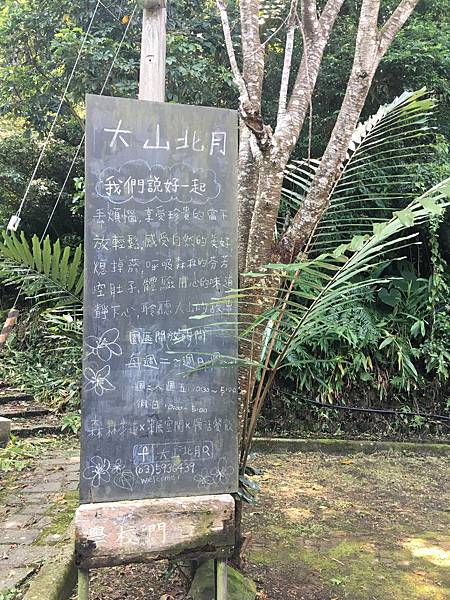 大山北月
我們說好一起
丟煩惱,享受珍貴的當下
放輕鬆,感受自然的美好
熄掉菸,呼吸森林的芬芳
空肚子,體驗用心的味道
靜下心,聆聽人山的故事
園區開放時間
每週二~週日
週二~週五 10:30~5:00
假日 10:00~5:00
森林步道×策展空間×復活餐飲
大山北月
(03)5936439
welcome!
學校門